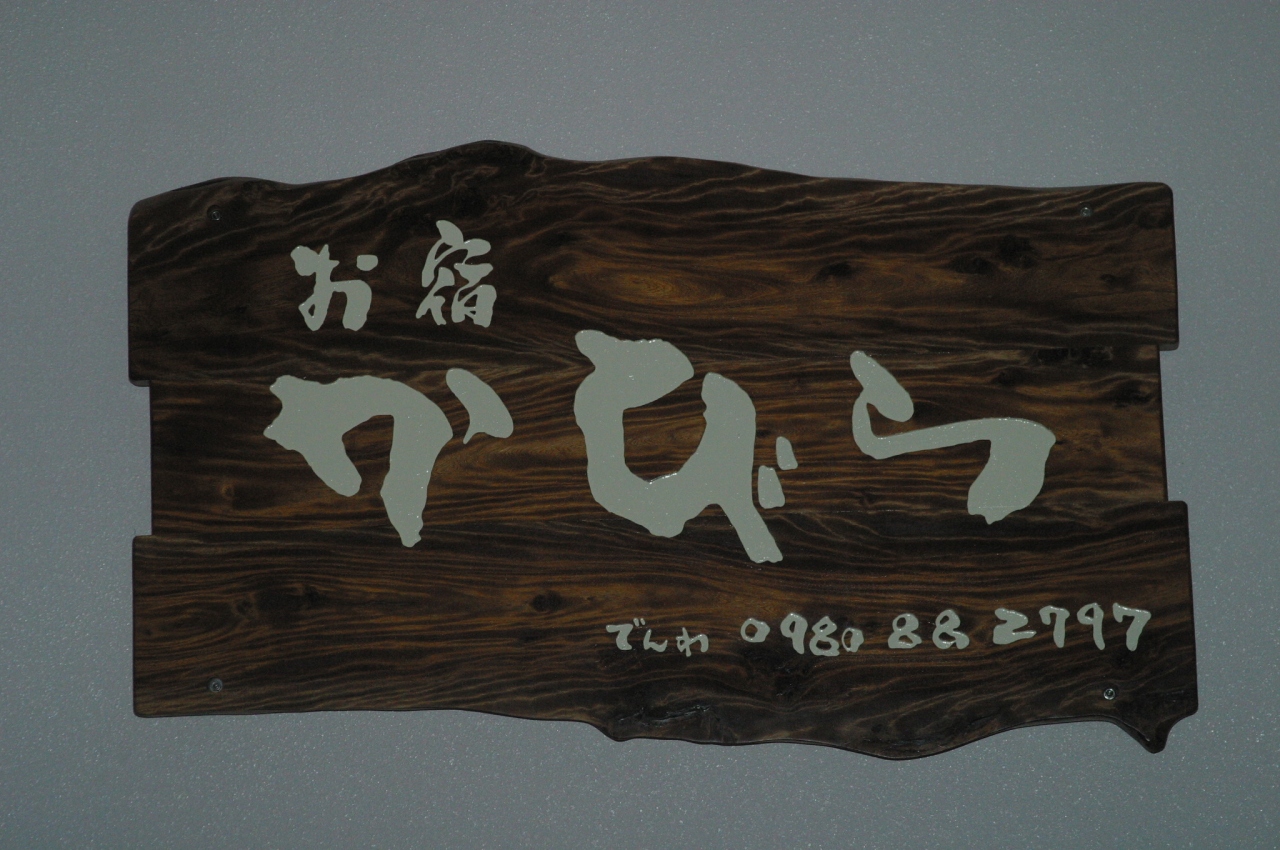 お宿
かびら
でんわ 0980 88 2797